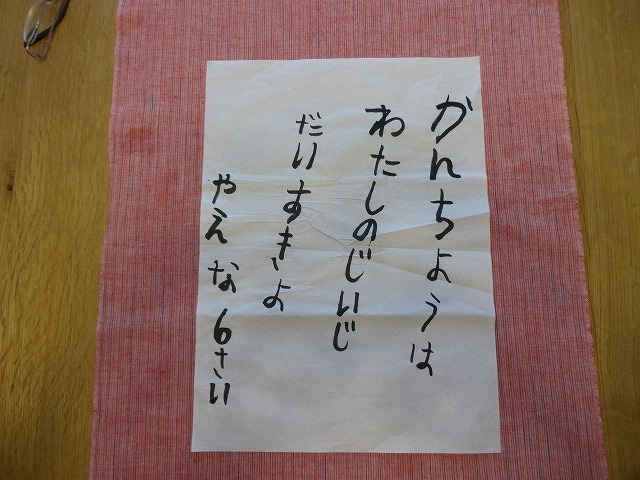 がんちようは
わたしのじいじ
だいすきよ
やえな6さい